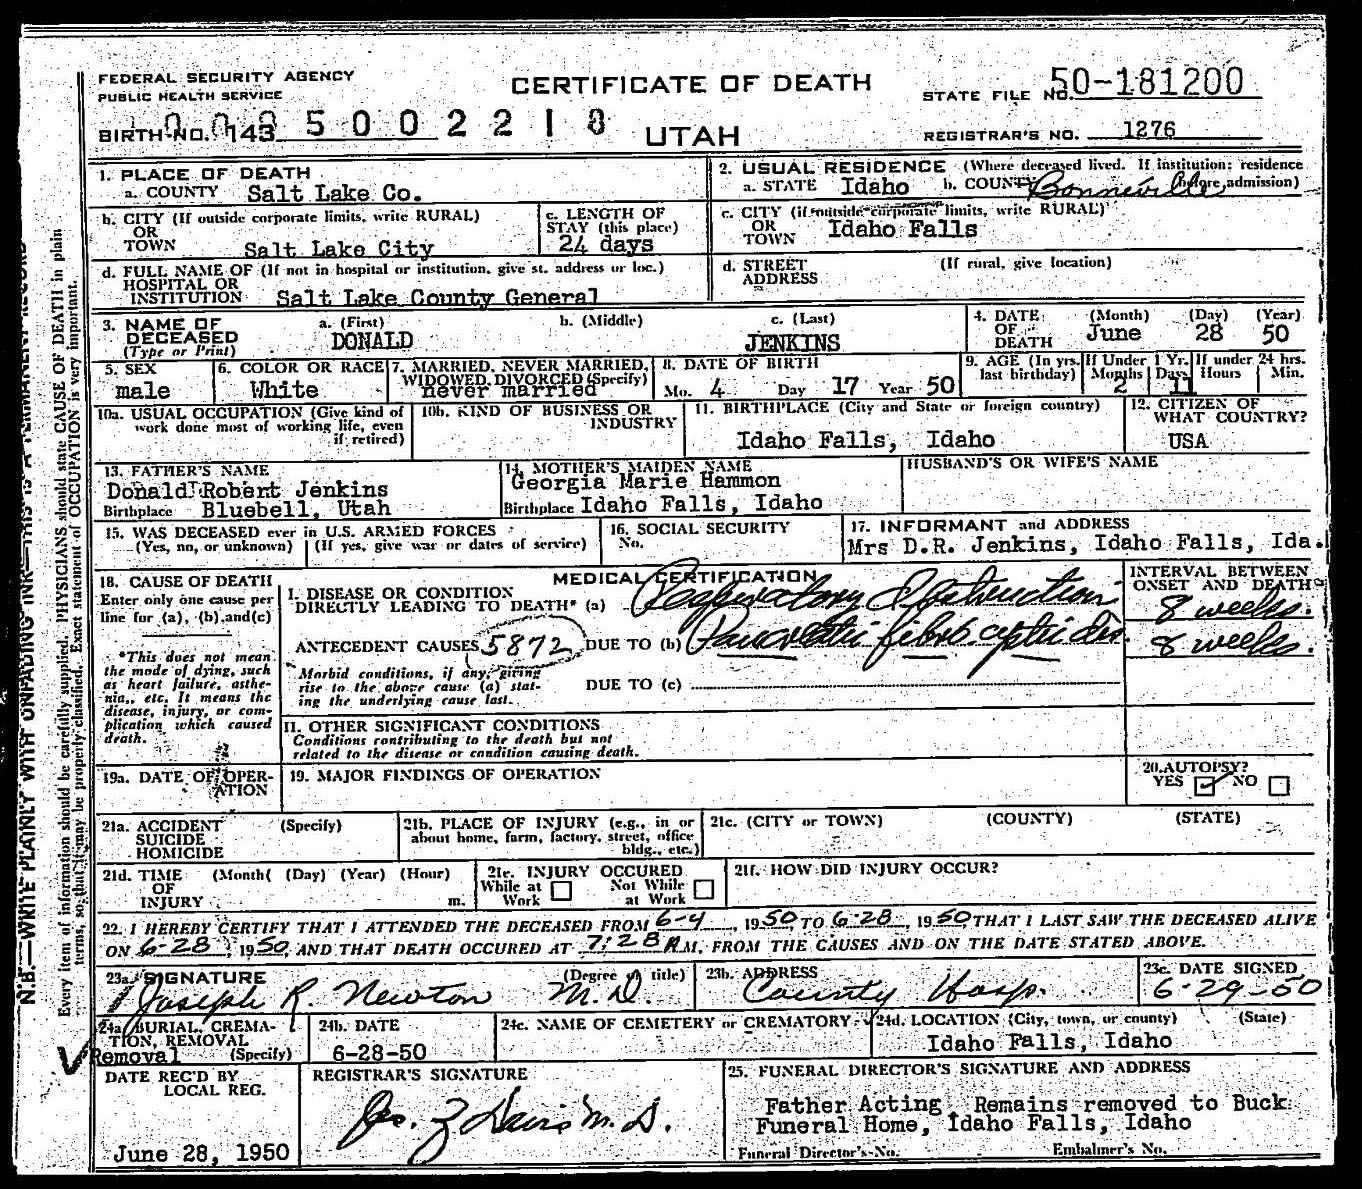 FEDERAL SECURITY AGENCY
PUBLIC HEALTH SERVICE
CERTIFICATE OF DEATH
STATE FILE NO. 50-181200
BIRTH NO. 143 5002218
UTAH
REGISTRAR'S NO. 1276
1. PLACE OF DEATH
a. COUNTY Salt Lake Co.
2. USUAL RESIDENCE (Where deceased lived. If institution: residence before admission)
a. STATE Idaho b. COUNTY Bonneville
b. CITY (If outside corporate limits, write RURAL)
OR
TOWN Salt Lake City
c. LENGTH OF
STAY (this place)
24 days
c. CITY (if outside corporate limits, write RURAL)
OR
TOWN Idaho Falls
d. FULL NAME OF (If not in hospital or institution, give st. address or loc.)
HOSPITAL OR
INSTITUTION Salt Lake County General
d. STREET (If rural, give location)
ADDRESS
3. NAME OF
DECEASED
(Type or Print)
a. (First) b. (Middle) c. (Last)
DONALD JENKINS
4. DATE (Month) (Day) (Year)
OF
DEATH June 28 50
5. SEX
male
6. COLOR OR RACE
White
7. MARRIED, NEVER MARRIED,
WIDOWED, DIVORCED (Specify)
never married
8. DATE OF BIRTH
Mo. 4 Day 17 Year 50
9. AGE (In yrs. last birthday)
If Under 1 Yr. Months Days
2 11
If under 24 hrs. Hours Min.
10a. USUAL OCCUPATION (Give kind of
work done most of working life, even
if retired)
10b. KIND OF BUSINESS OR
INDUSTRY
11. BIRTHPLACE (City and State or foreign country)
Idaho Falls, Idaho
12. CITIZEN OF
WHAT COUNTRY?
USA
13. FATHER'S NAME
Donald Robert Jenkins
Birthplace Bluebell, Utah
14. MOTHER'S MAIDEN NAME
Georgia Marie Hammon
Birthplace Idaho Falls, Idaho
HUSBAND'S OR WIFE'S NAME
15. WAS DECEASED ever in U.S. ARMED FORCES
(Yes, no, or unknown) (If yes, give war or dates of service)
16. SOCIAL SECURITY
No.
17. INFORMANT and ADDRESS
Mrs D.R. Jenkins, Idaho Falls, Ida.
18. CAUSE OF DEATH
Enter only one cause per
line for (a), (b), and (c)
*This does not mean
the mode of dying, such
as heart failure, asthe-
nia, etc. It means the
disease, injury, or com-
plication which caused
death.
MEDICAL CERTIFICATION
I. DISEASE OR CONDITION
DIRECTLY LEADING TO DEATH* (a) Respiratory Obstruction
ANTECEDENT CAUSES 5872 DUE TO (b) Pancreatic fibrosis
Morbid conditions, if any, giving
rise to the above cause (a) stat-
ing the underlying cause last.
DUE TO (c)
INTERVAL BETWEEN
ONSET AND DEATH
8 weeks.
8 weeks.
II. OTHER SIGNIFICANT CONDITIONS
Conditions contributing to the death but not
related to the disease or condition causing death.
19a. DATE OF OPER-
ATION
19. MAJOR FINDINGS OF OPERATION
20. AUTOPSY?
YES ☑ NO ☐
21a. ACCIDENT (Specify)
SUICIDE
HOMICIDE
21b. PLACE OF INJURY (e.g., in or
about home, farm, factory, street, office
bldg., etc.)
21c. (CITY or TOWN) (COUNTY) (STATE)
21d. TIME (Month( (Day) (Year) (Hour)
OF
INJURY m.
21e. INJURY OCCURED
While at Work ☐ Not While at Work ☐
21f. HOW DID INJURY OCCUR?
22. I HEREBY CERTIFY THAT I ATTENDED THE DECEASED FROM 6-4, 1950, TO 6-28, 1950, THAT I LAST SAW THE DECEASED ALIVE
ON 6-28, 1950, AND THAT DEATH OCCURED AT 7:28 A.M., FROM THE CAUSES AND ON THE DATE STATED ABOVE.
23a. SIGNATURE (Degree or title)
Joseph R. Newton M.D.
23b. ADDRESS
County Hosp.
23c. DATE SIGNED
6-29-50
24a. BURIAL, CREMA-
TION, REMOVAL
Removal (Specify)
24b. DATE
6-28-50
24c. NAME OF CEMETERY or CREMATORY
24d. LOCATION (City, town, or county) (State)
Idaho Falls, Idaho
DATE REC'D BY
LOCAL REG.
June 28, 1950
REGISTRAR'S SIGNATURE
25. FUNERAL DIRECTOR'S SIGNATURE AND ADDRESS
Father Acting Remains removed to Buck
Funeral Home, Idaho Falls, Idaho
Funeral Director's No. Embalmer's No.
N.B.—WRITE PLAINLY WITH UNFADING INK—THIS IS A PERMANENT RECORD
Every item of information should be carefully supplied. PHYSICIANS should state CAUSE OF DEATH in plain
terms, so that it may be properly classified. Exact statement of OCCUPATION is very important.